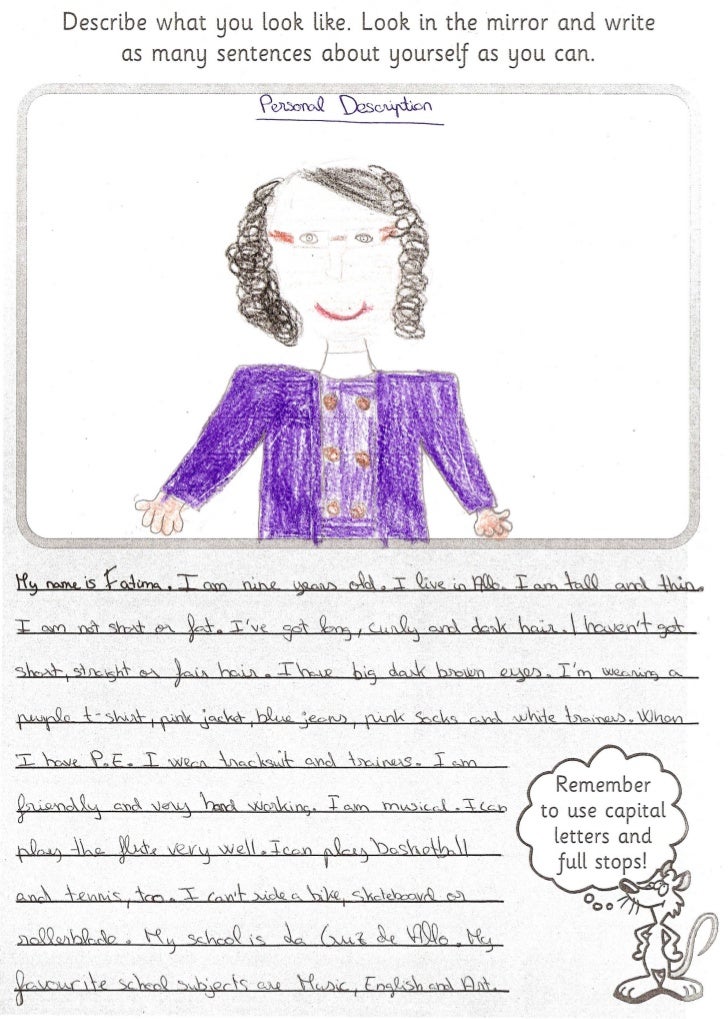 Describe what you look like. Look in the mirror and write
as many sentences about yourself as you can.
Personal Description
My name is Fatima. I am nine years old. I live in Allo. I am tall and thin.
I am not short or fat. I've got long, curly and dark hair. I haven't got
short, straight or fair hair. I have big dark brown eyes. I'm wearing a
purple t-shirt, pink jacket, blue jeans, pink socks and white trainers. When
I have P.E. I wear tracksuit and trainers. I am
friendly and very hard working. I am musical. I can
play the flute very well. I can play basketball
and tennis, too. I can't ride a bike, skateboard or
rollerblade. My school is da Cruz de Allo. My
favourite school subjects are Music, English and Art.
Remember
to use capital
letters and
full stops!